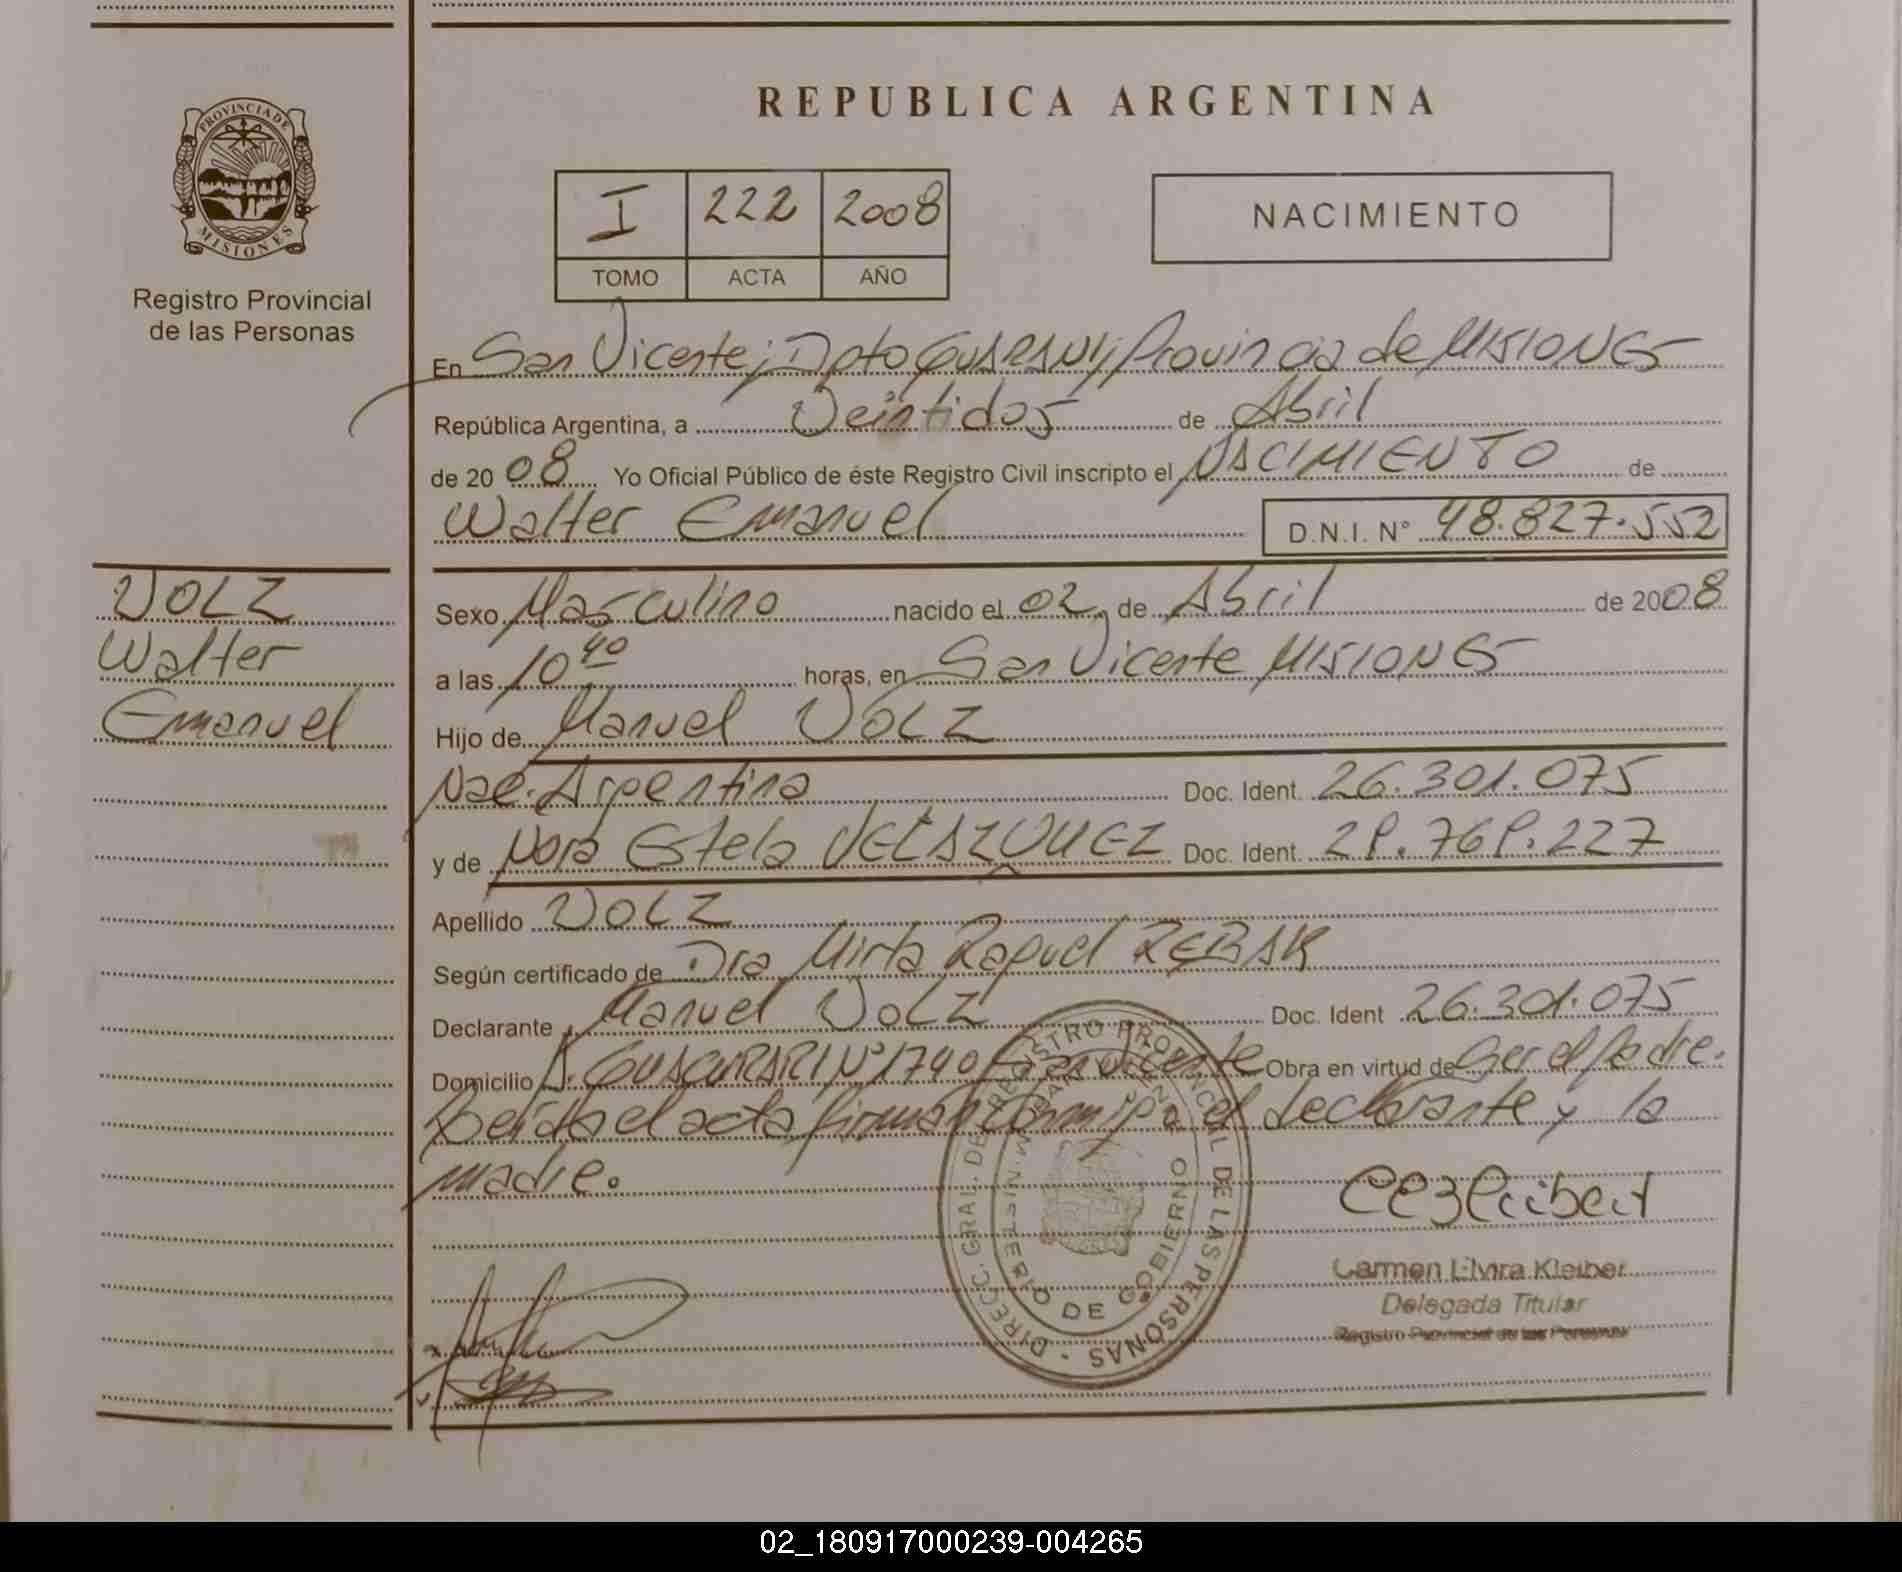 REPUBLICA ARGENTINA
PROVINCIA DE
MISIONES
Registro Provincial
de las Personas
I 222 2008
TOMO ACTA AÑO
NACIMIENTO
En San Vicente; Dpto GUARANI; Provincia de MISIONES
República Argentina, a Veintidos de Abril
de 2008 Yo Oficial Público de éste Registro Civil inscripto el NACIMIENTO de
Walter Emanuel D.N.I. N° 48.827.552
VOLZ
Walter
Emanuel
Sexo Masculino nacido el 02 de Abril de 2008
a las 10 40 horas, en San Vicente MISIONES
Hijo de Manuel VOLZ
Nac. Argentina Doc. Ident. 26.301.075
y de Nora Estela VELAZQUEZ Doc. Ident. 29.769.227
Apellido VOLZ
Según certificado de Dra Mirta Raquel REBAK
Declarante Manuel VOLZ Doc. Ident 26.301.075
Domicilio A. GUACURARI N° 1740 San Vicente Obra en virtud de Ser el Padre.
Leída el acta firman conmigo el declarante y la
madre.
DIRECC. GRAL. DEL REGISTRO PROVINCIAL DE LAS PERSONAS
MINISTERIO DE GOBIERNO
Carmen Elvira Kleiber
Delegada Titular
Registro Provincial de las Personas
02_180917000239-004265